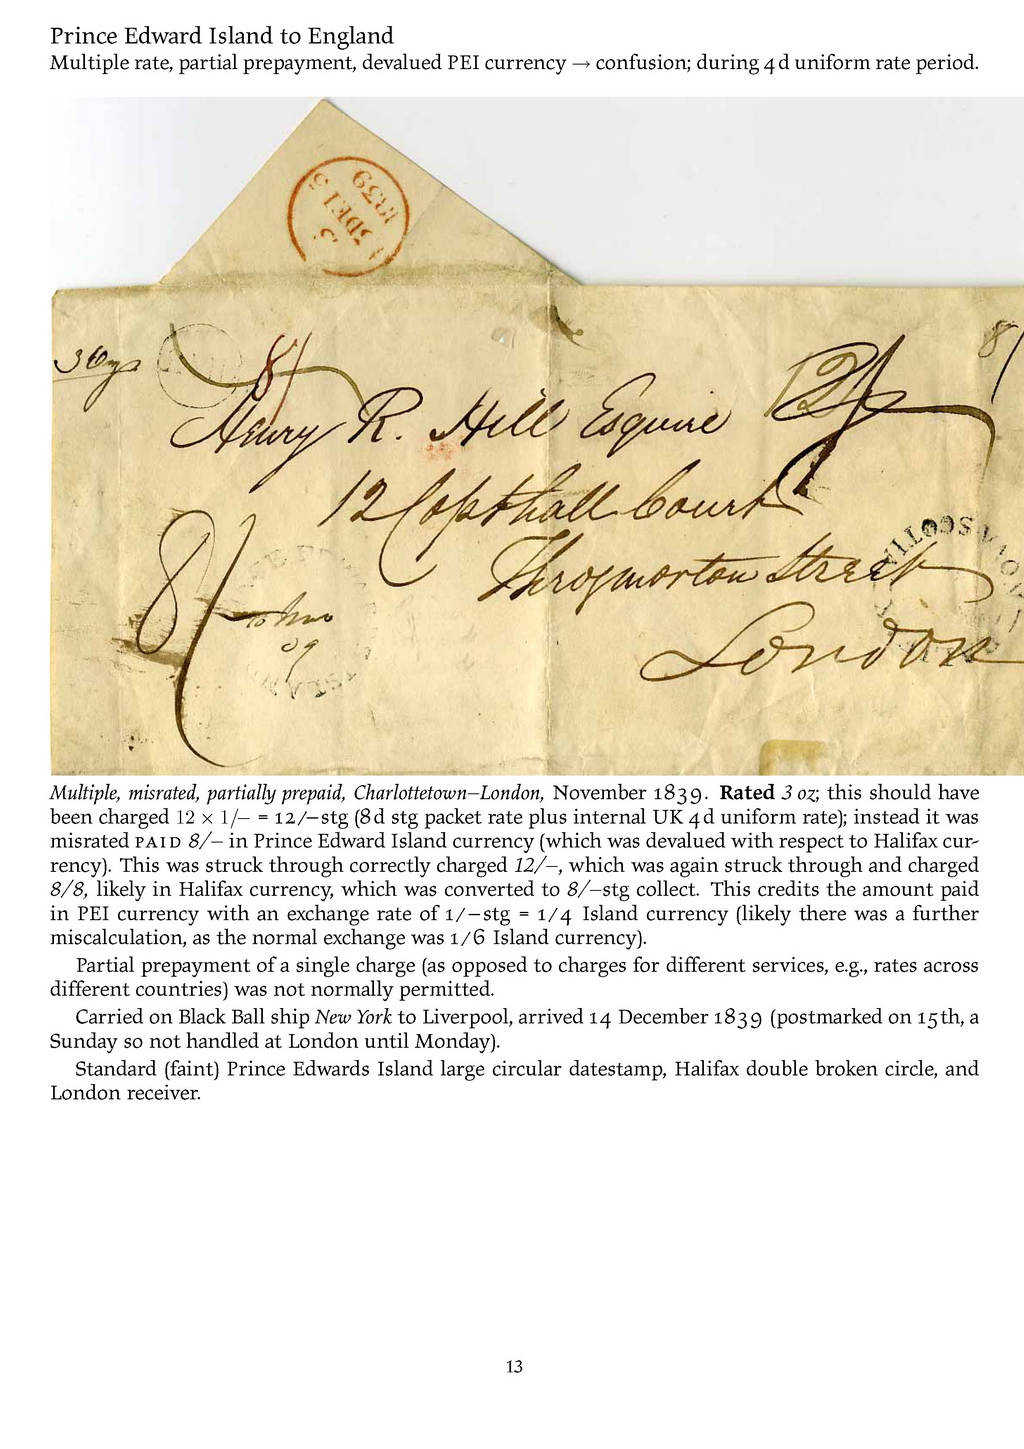 Prince Edward Island to England
Multiple rate, partial prepayment, devalued PEI currency → confusion; during 4d uniform rate period.
1839
3 oz
8/
12/
8/
Henry R. Hill Esquire
12 Copthall Court
Throgmorton Street
London
8/
10 Nov
39
NOVA SCOTIA
Multiple, misrated, partially prepaid, Charlottetown–London, November 1839. Rated 3 oz; this should have
been charged 12 × 1/– = 12/–stg (8d stg packet rate plus internal UK 4d uniform rate); instead it was
misrated PAID 8/– in Prince Edward Island currency (which was devalued with respect to Halifax cur-
rency). This was struck through correctly charged 12/–, which was again struck through and charged
8/8, likely in Halifax currency, which was converted to 8/–stg collect. This credits the amount paid
in PEI currency with an exchange rate of 1/–stg = 1/4 Island currency (likely there was a further
miscalculation, as the normal exchange was 1/6 Island currency).
Partial prepayment of a single charge (as opposed to charges for different services, e.g., rates across
different countries) was not normally permitted.
Carried on Black Ball ship New York to Liverpool, arrived 14 December 1839 (postmarked on 15th, a
Sunday so not handled at London until Monday).
Standard (faint) Prince Edwards Island large circular datestamp, Halifax double broken circle, and
London receiver.
13